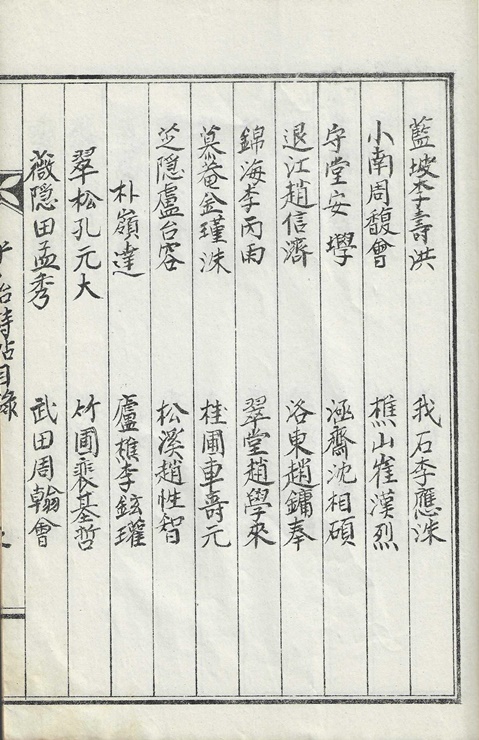 藍坡李壽洪 我石李應洙
小南周馥會 樵山崔漢烈
守堂安壆 涵齋沈相碩
退江趙信濟 洛東趙鏞奉
錦海李丙雨 翠堂趙學來
慕菴金瑾洙 桂圃車壽元
芝隐盧台容 松溪趙性智
朴嶺達 廬樵李鉉瓘
翠松孔元大 竹圃裵基哲
薇隐田孟秀 武田周翰會
詩帖目錄